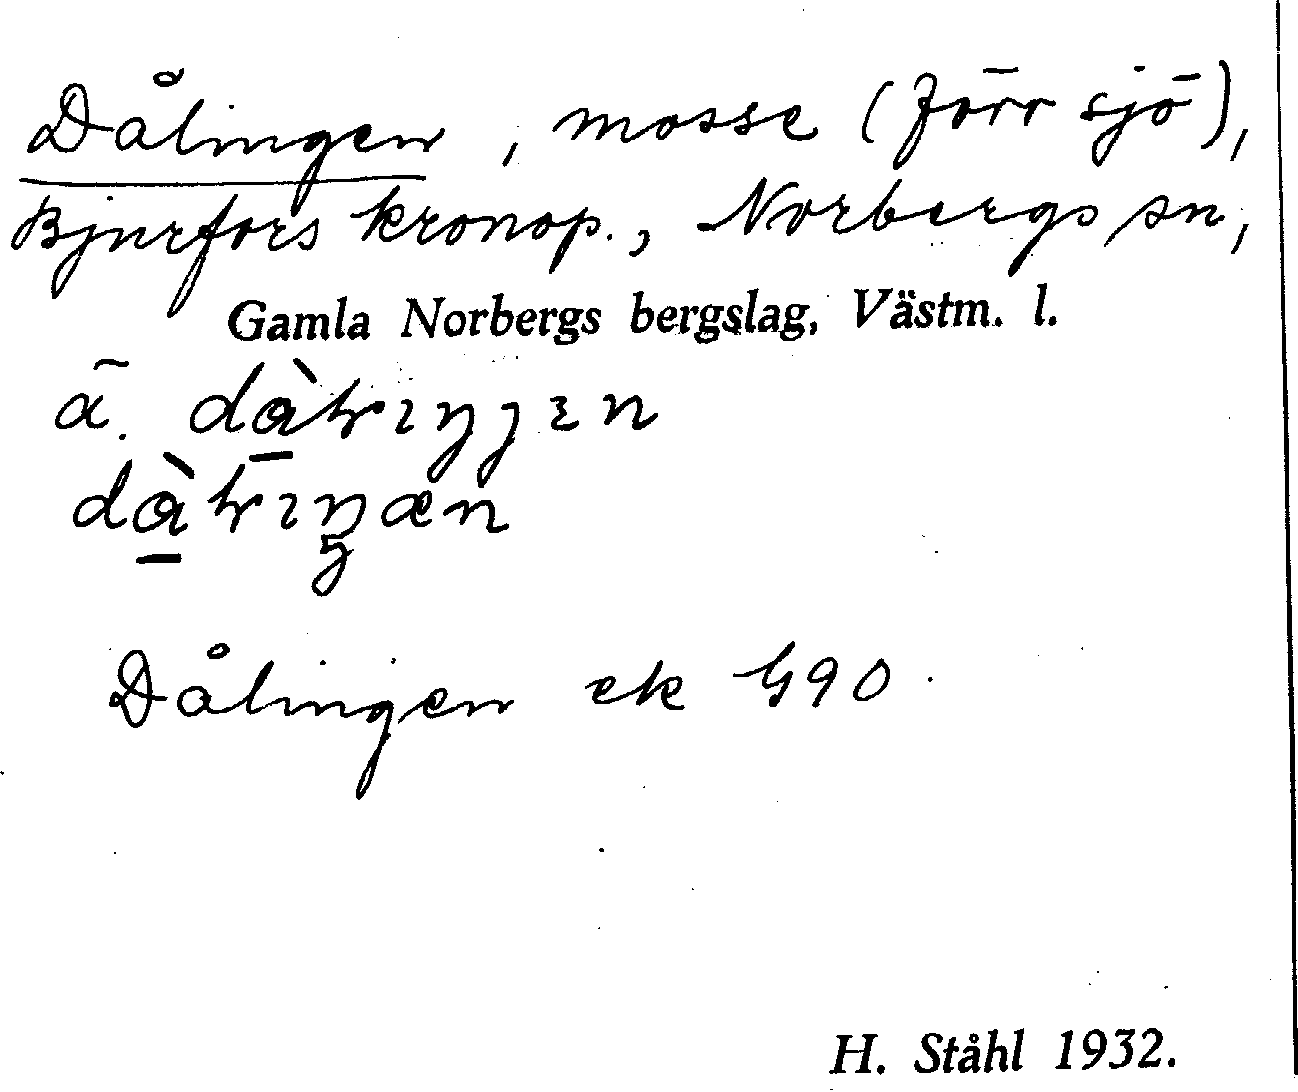 Dålingen, mosse (förr sjö),
Bjurfors kronop., Norbergs sn,
Gamla Norbergs bergslag, Västm. l.
ä.
Dålingen ek G90.
H. Ståhl 1932.